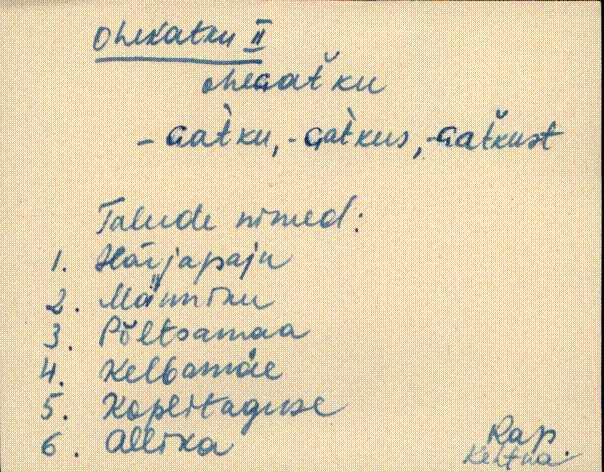 Ohekatku II
ohegat̆ku
- gat̀ku, -gat̀kus, -gat̆kust
Talude nimed:
1. Härjapaju
2. Männiku
3. Põltsamaa
4. Kelbamäe
5. Koplitaguse
6. Allika
Rap.
Kehtna